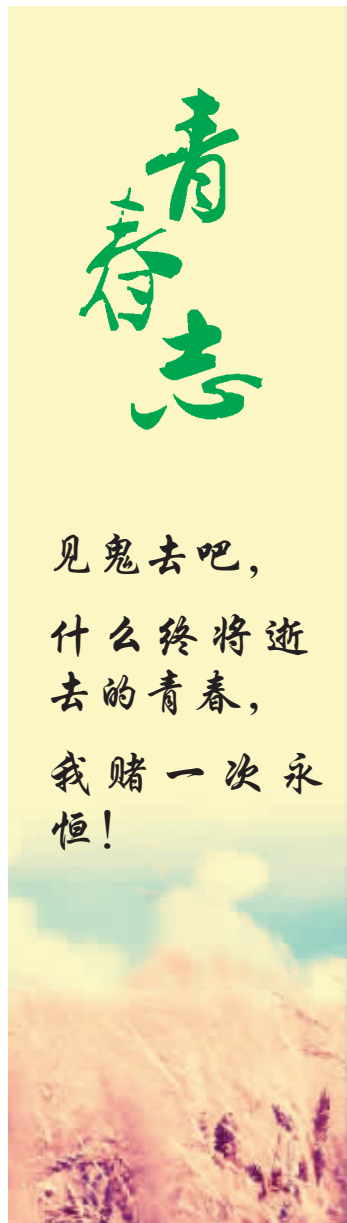 青春志
见鬼去吧，
什么终将逝
去的青春，
我赌一次永
恒！